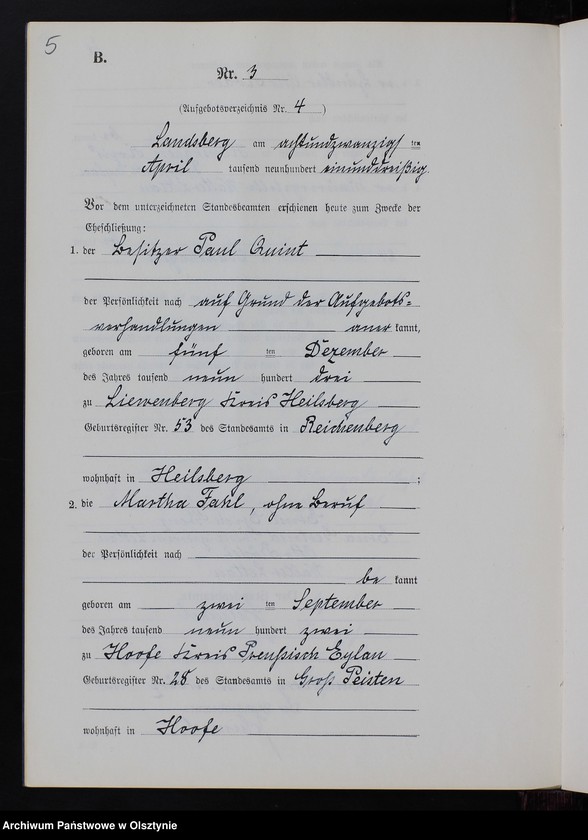 5
B.
Nr. 3
(Aufgebotsverzeichnis Nr. 4)
Landsberg am achtundzwanzigsten
April tausend neunhundert einunddreißig.
Vor dem unterzeichneten Standesbeamten erschienen heute zum Zwecke der
Eheschließung:
1. der Besitzer Paul Quint
der Persönlichkeit nach auf Grund der Aufgebots=
verhandlungen anerkannt,
geboren am fünften Dezember
des Jahres tausend neun hundert drei
zu Liewenberg Kreis Heilsberg
Geburtsregister Nr. 53 des Standesamts in Reichenberg
wohnhaft in Heilsberg ;
2. die Martha Fahl, ohne Beruf
der Persönlichkeit nach
be kannt
geboren am zwei ten September
des Jahres tausend neun hundert zwei
zu Hoofe Kreis Preußisch Eylau
Geburtsregister Nr. 28 des Standesamts in Groß Peisten
wohnhaft in Hoofe
Archiwum Państwowe w Olsztynie